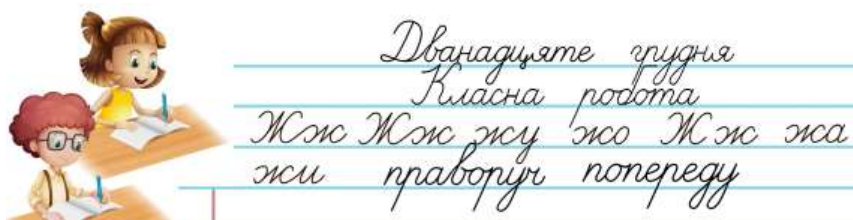 Дванадцяте грудня
Класна робота
Жж Жж жу жо Жж жа
жи праворуч попереду